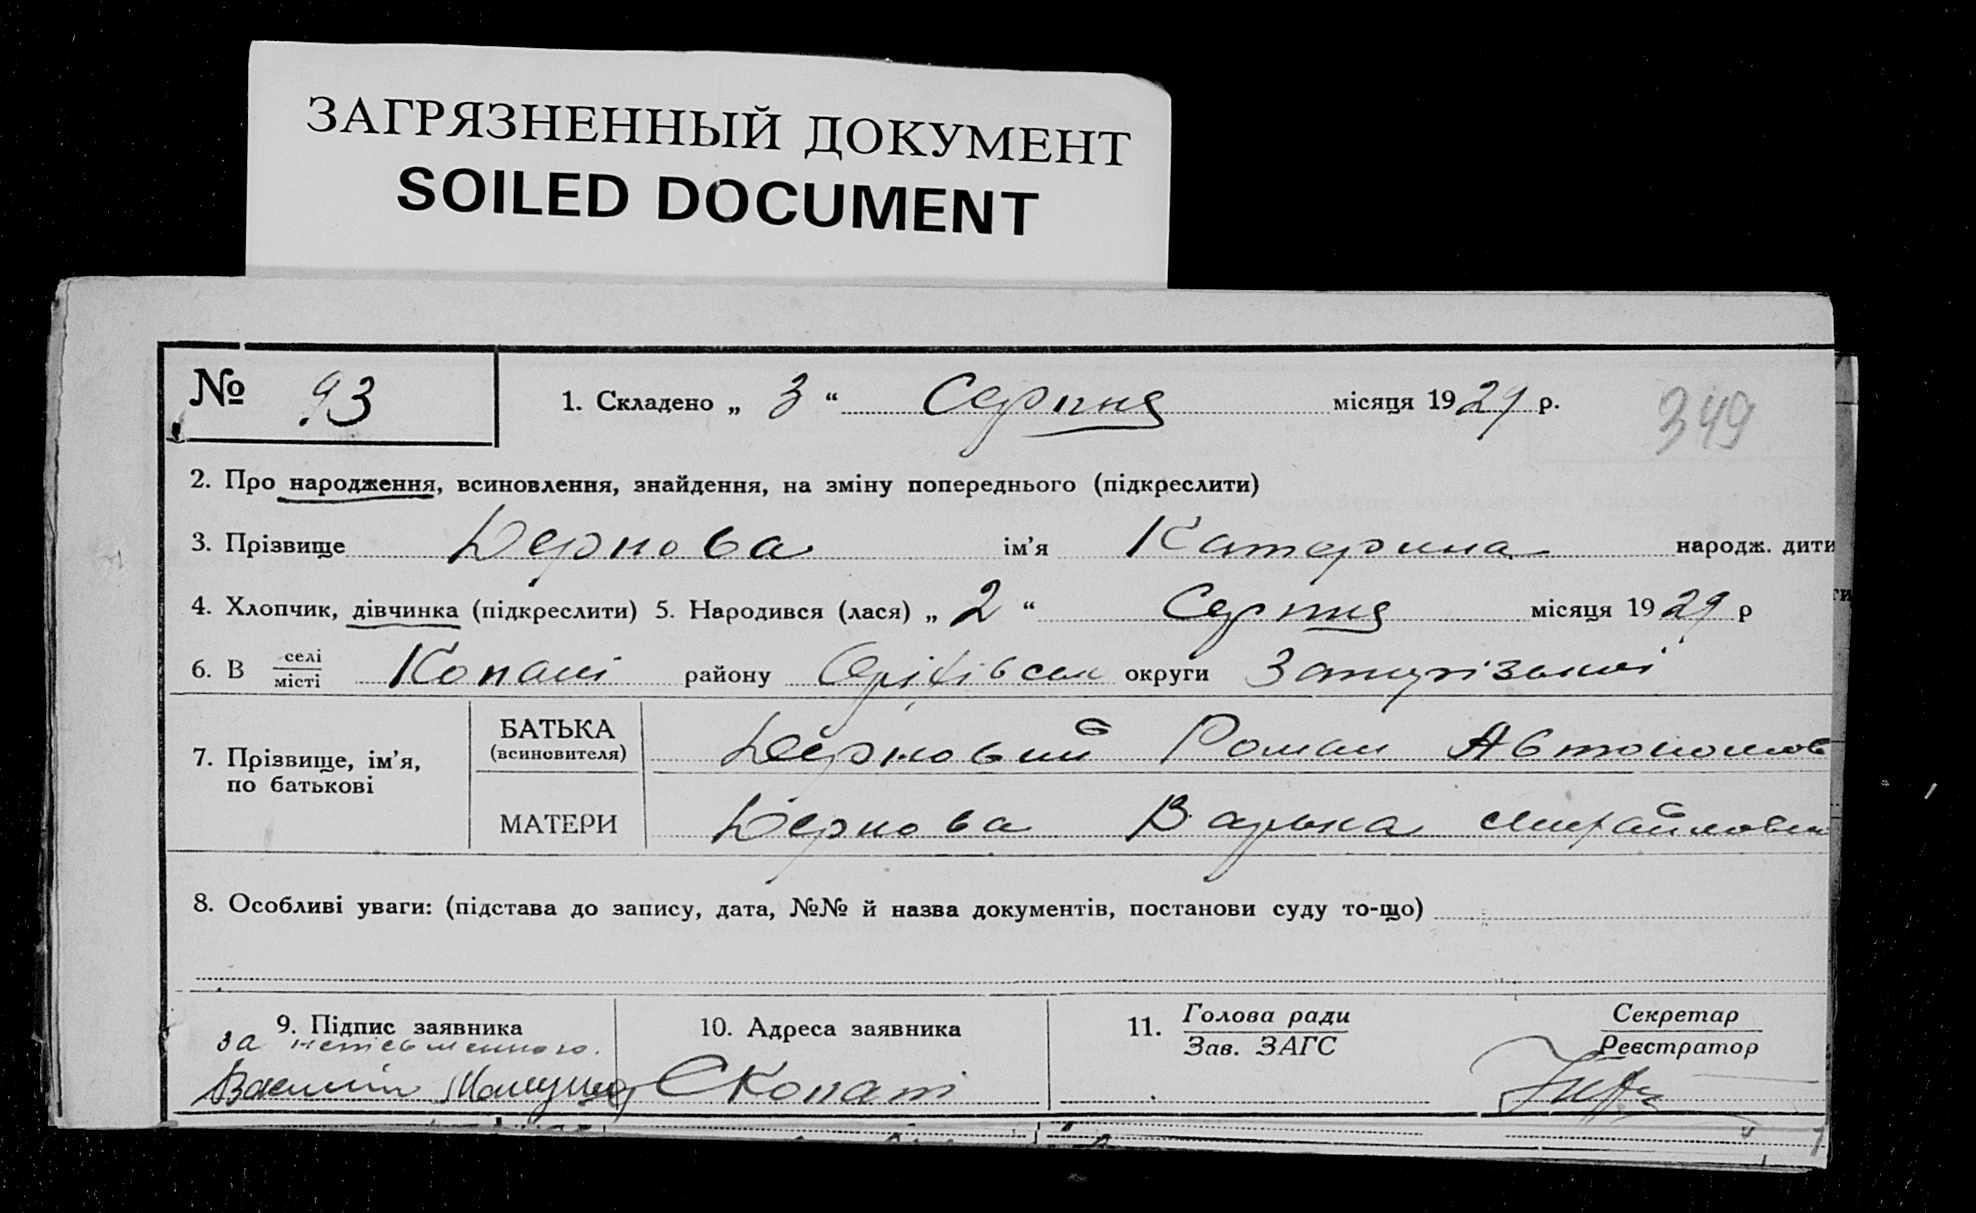 ЗАГРЯЗНЕННЫЙ ДОКУМЕНТ
SOILED DOCUMENT
№ 93
1. Складено „ 3 “ Серпня місяця 1929 р.
349
2. Про народження, всиновлення, знайдення, на зміну попереднього (підкреслити)
3. Прізвище Дернова ім’я Катерина народж. дити
4. Хлопчик, дівчинка (підкреслити) 5. Народився (лася) „ 2 “ Серпня місяця 1929 р
6. В селі місті Копані району Оріхівськ округи Запорізької
7. Прізвище, ім’я, по батькові
БАТЬКА (всиновителя) Дерновий Роман Автономов
МАТЕРИ Дернова Варька Михайловна
8. Особливі уваги: (підстава до запису, дата, №№ й назва документів, постанови суду то-що)
9. Підпис заявника
за неписьменного.
Василь
10. Адреса заявника
С Копані
11. Голова ради
Зав. ЗАГС
Секретар
Реєстратор